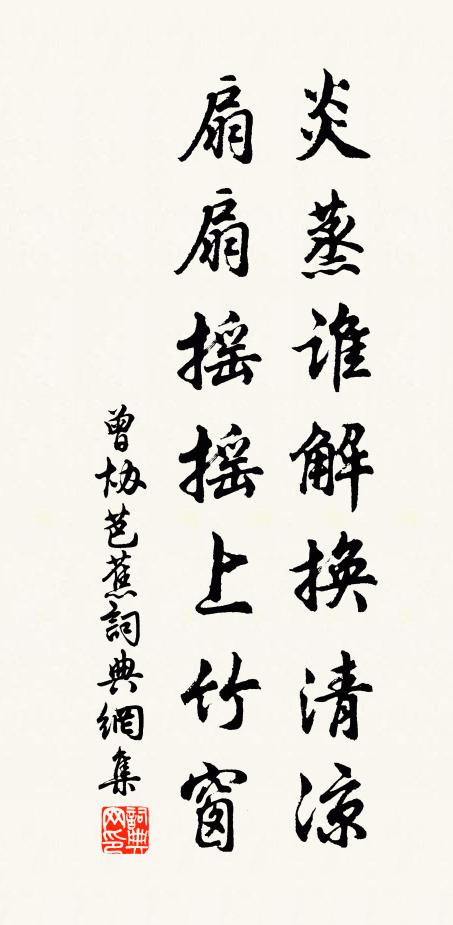 炎蒸谁解换清凉
扇扇摇摇上竹窗
曾协芭蕉詞典網集
詞典网印